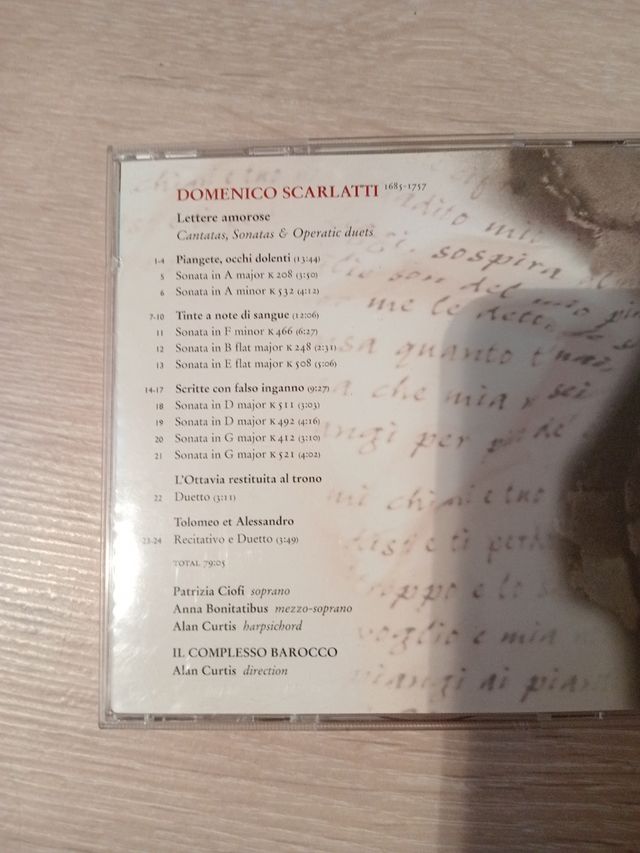 DOMENICO SCARLATTI 1685-1757
Lettere amorose
Cantatas, Sonatas & Operatic duets
1-4 Piangete, occhi dolenti (13:44)
5 Sonata in A major K 208 (3:50)
6 Sonata in A minor K 532 (4:12)
7-10 Tinte a note di sangue (12:06)
11 Sonata in F minor K 466 (6:27)
12 Sonata in B flat major K 248 (2:31)
13 Sonata in E flat major K 508 (5:06)
14-17 Scritte con falso inganno (9:27)
18 Sonata in D major K 511 (3:03)
19 Sonata in D major K 492 (4:16)
20 Sonata in G major K 412 (3:10)
21 Sonata in G major K 521 (4:02)
L'Ottavia restituita al trono
22 Duetto (3:11)
Tolomeo et Alessandro
23-24 Recitativo e Duetto (3:49)
TOTAL 79:05
Patrizia Ciofi soprano
Anna Bonitatibus mezzo-soprano
Alan Curtis harpsichord
IL COMPLESSO BAROCCO
Alan Curtis direction
sospira
me le
quanto
che mia
per
e tuo
e ti
e lo
voglio e mia
piangi ai